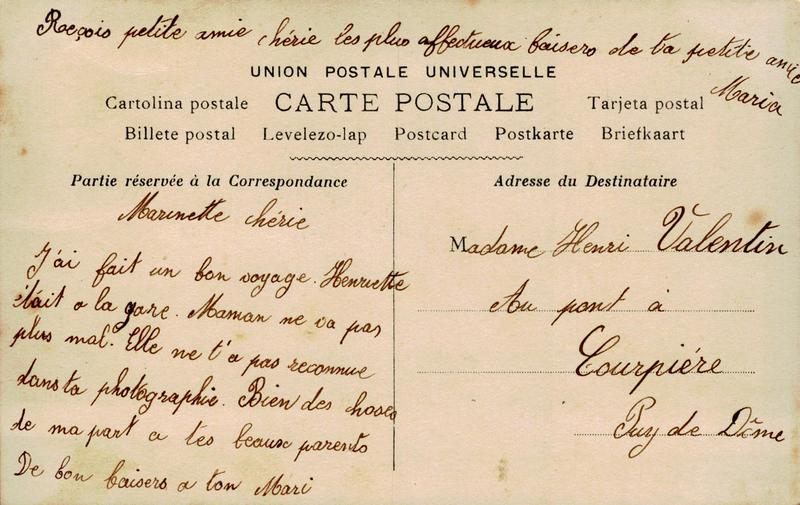 Reçois petite amie chérie les plus affectueux baisers de ta petite amie
Maria
UNION POSTALE UNIVERSELLE
Cartolina postale CARTE POSTALE Tarjeta postal
Billete postal Levelezo-lap Postcard Postkarte Briefkaart
Partie réservée à la Correspondance
Marinette chérie
J'ai fait un bon voyage. Henriette
était a la gare. Maman ne va pas
plus mal. Elle ne t'a pas reconnue
dans ta photographie. Bien des choses
de ma part a tes beaux parents
De bon baisers a ton Mari
Adresse du Destinataire
Madame Henri Valentin
Au pont à
Courpiére
Puy de Dôme